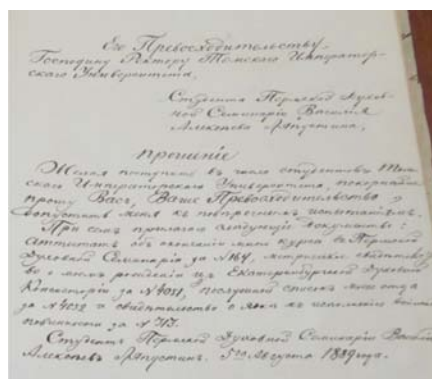 Его Превосходительству
Господину Ректору Томского Император-
скаго Университета,
Студента Пермской Духов-
ной Семинаріи Василія
Алексѣева Ляпустина,
прошеніе
Желая поступить въ число студентовъ Том-
скаго Императорскаго Университета, покорнѣйше
прошу Васъ, Ваше Превосходительство,
допустить меня къ повѣрочнымъ испытаніямъ.
При семъ прилагаю слѣдующіе документы:
аттестатъ объ окончаніи мною курса въ Пермской
Духовной Семинаріи за №164, метрическое свидѣтельст-
во о моемъ рожденіи изъ Екатеринбургской Духовной
Консисторіи за №4051, послужной списокъ моего отца
за №4052 и свидѣтельство о явкѣ къ исполненію воинской
повинности за №713.
Студентъ Пермской Духовной Семинаріи Василій
Алексѣевъ Ляпустинъ. 5го Августа 1889 года.